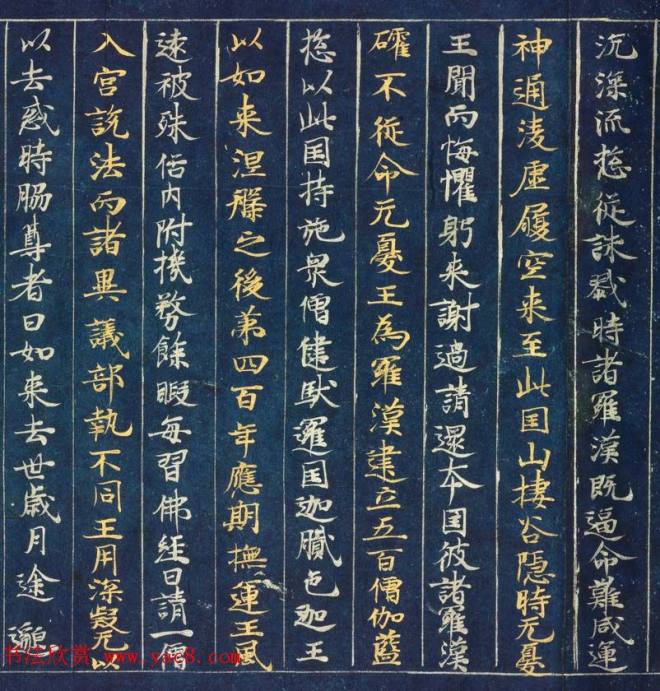 沉深流惣從誅戮時諸羅漢既逼命難咸運
神通淩虛履空来至此国山棲谷隱時无憂
王聞而悔懼躬来謝過請還本国彼諸羅漢
礭不從命无憂王為羅漢建立五百僧伽藍
惣以此国持施衆僧健馱邏国迦膩色迦王
以如来涅槃之後第四百年應期撫運王風
遠被殊俗内附機務餘暇每習佛經日請一僧
入宮說法而諸異議部執不同王用深疑无以
以去惑時脇尊者曰如来去世歲月逾邈
书法欣赏 www.yac8.com